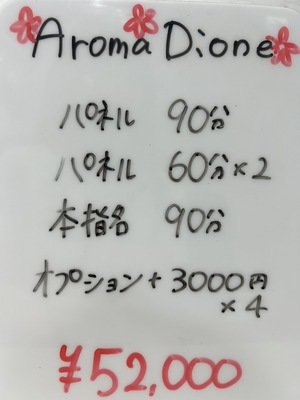 Aroma Dione
パネル 90分
パネル 60分×2
本指名 90分
オプション+3000円
×4
¥52,000